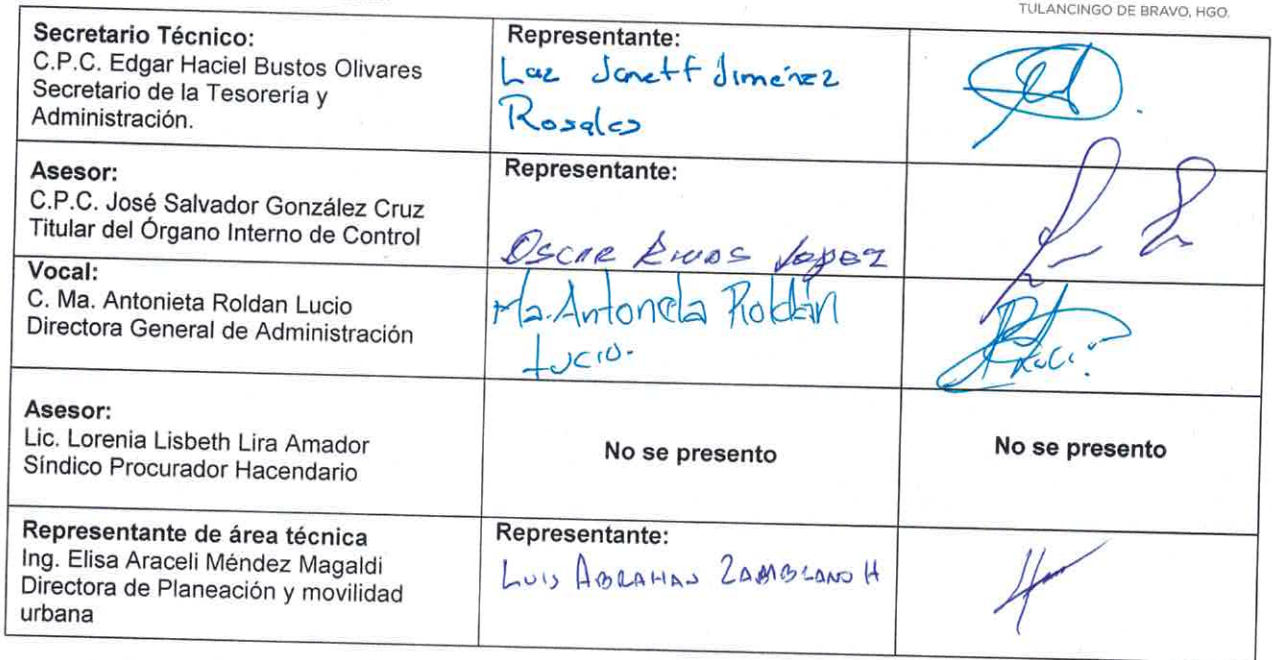 TULANCINGO DE BRAVO, HGO.
Secretario Técnico:
C.P.C. Edgar Haciel Bustos Olivares
Secretario de la Tesorería y
Administración.
Representante:
Luz Janett Jiménez
Rosales
Asesor:
C.P.C. José Salvador González Cruz
Titular del Órgano Interno de Control
Representante:
Oscar Rivas Lopez
Vocal:
C. Ma. Antonieta Roldan Lucio
Directora General de Administración
Ma. Antonieta Roldán
Lucio.
Asesor:
Lic. Lorenia Lisbeth Lira Amador
Síndico Procurador Hacendario
No se presento
No se presento
Representante de área técnica
Ing. Elisa Araceli Méndez Magaldi
Directora de Planeación y movilidad
urbana
Representante:
Luis ABRAHAN ZAMBRANO H